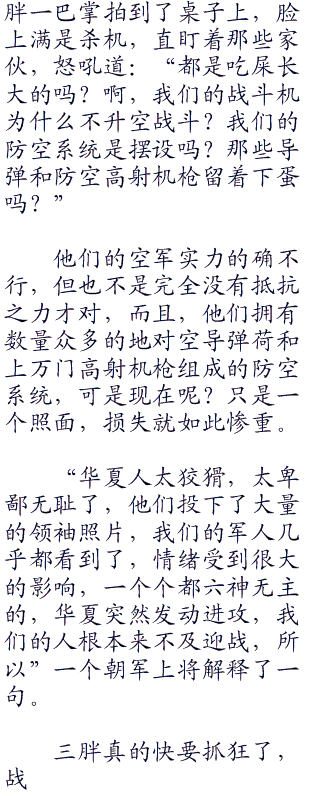 胖一巴掌拍到了桌子上，脸
上满是杀机，直盯着那些家
伙，怒吼道：“都是吃屎长
大的吗？啊，我们的战斗机
为什么不升空战斗？我们的
防空系统是摆设吗？那些导
弹和防空高射机枪留着下蛋
吗？”
他们的空军实力的确不
行，但也不是完全没有抵抗
之力才对，而且，他们拥有
数量众多的地对空导弹荷和
上万门高射机枪组成的防空
系统，可是现在呢？只是一
个照面，损失就如此惨重。
“华夏人太狡猾，太卑
鄙无耻了，他们投下了大量
的领袖照片，我们的军人几
乎都看到了，情绪受到很大
的影响，一个个都六神无主
的，华夏突然发动进攻，我
们的人根本来不及迎战，所
以”一个朝军上将解释了一
句。
三胖真的快要抓狂了，
战